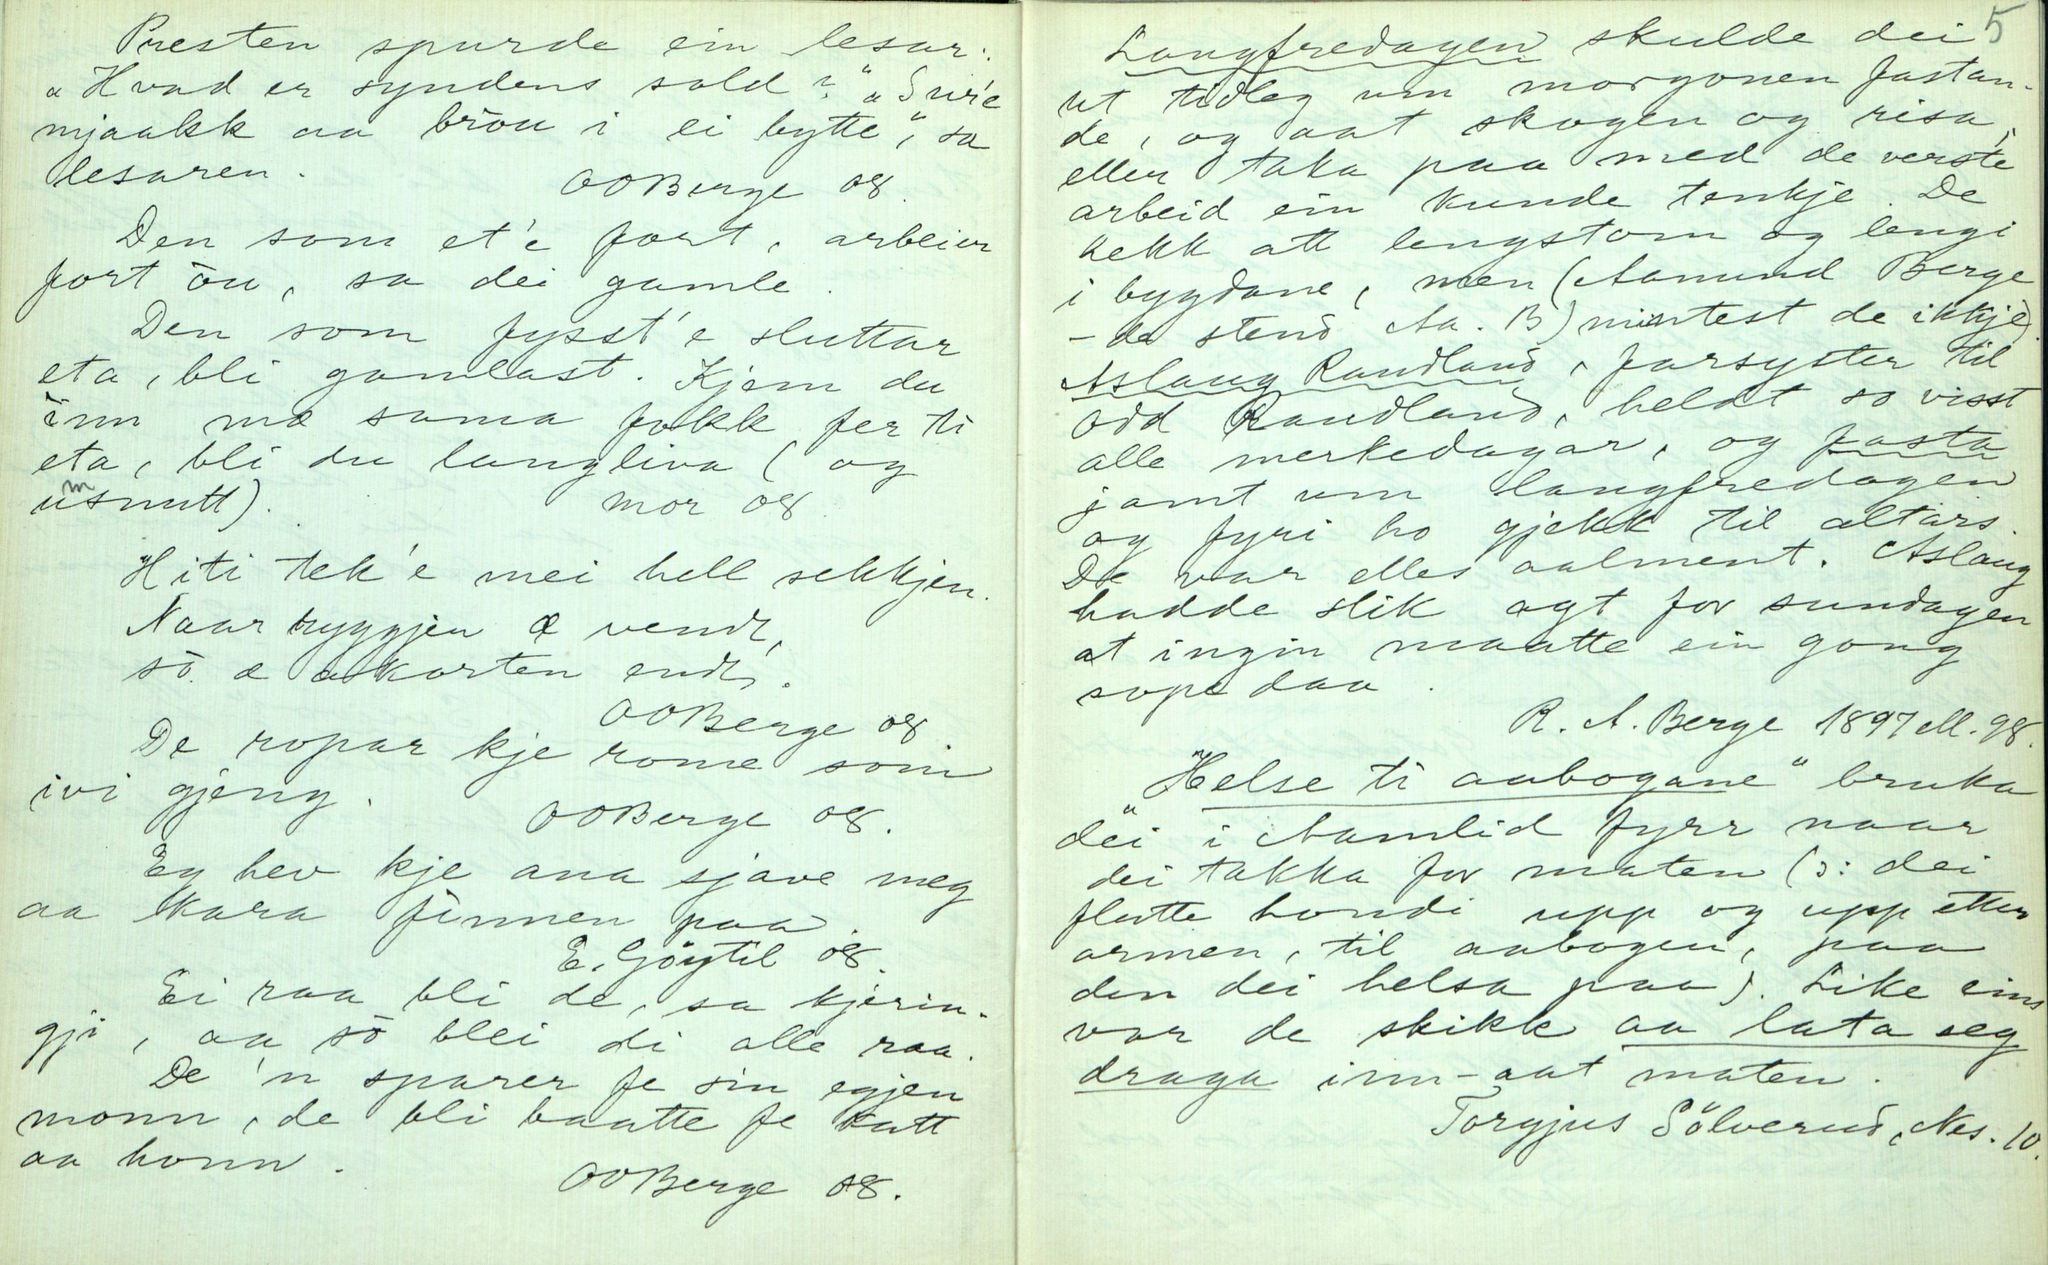 Presten spurde ein lesar:
„Hvad er syndens sold?" „Sur'e
mjaakk aa brōu i ei bytte", sa
lesaren.
OOBerge 08.
Den som et'e fort, arbeier
fort ōu, sa dei gamle.
Den som fysst'e sluttar
eta, bli gamlast. Kjem du
inn mæ sama fokk fer ti
eta, bli du langliva (og
usnutt).
m
mor 08
Hiti tek'e mei hell sekkjen.
Naar hyggjen æ vendt,
sō æ akorten endt.
OOBerge 08.
De ropar kje rome som
ivi gjeng.
OOBerge 08.
Eg hev kje ana sjave meg
aa kara finnen paa.
E. Göytil 08.
Ei raa bli de, sa kjerin-
gji, aa sō blei di alle raa.
De 'n sparer fe sin egjen
monn, de bli baatte fe katt
aa honn.
OOBerge 08.
5
Langfredagen skulde dei
ut tidleg um morgonen fastan-
de, og aat skogen og risa,
eller taka paa med de verste
arbeid ein kunde tenkje. De
hekk att lengstom og lengi
i bygdane, men (Aamund Berge
- de stend Aa. B) mintest de ikkje).
Aslaug Raudland, farsyster til
Odd Raudland, heldt so visst
alle merkedagar, og fasta
jamt um langfredagen
og fyri ho gjekk til altars.
De var elles aalment. Aslaug
hadde slik agt for sundagen
at ingin maatte ein gong
sope daa.
R. A. Berge 1897 M. 98.
„Helse ti aabogane" bruka
dei i Aamlid fyrr naar
dei takka for maten (ɔ: dei
flutte hondi upp og upp etter
armen, til aabogen, paa
den dei helsa paa). Like eins
var de skikk aa lata seg
draga inn-aat maten.
Torgjus Sölverud, Nes. 10.